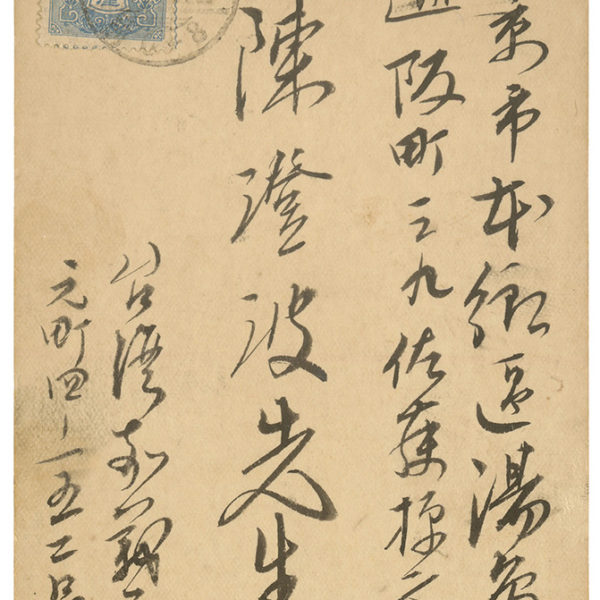 京市本鄉區湯島
阪町三九佐藤操
陳澄波先生
台灣嘉義
元町四ー一五二